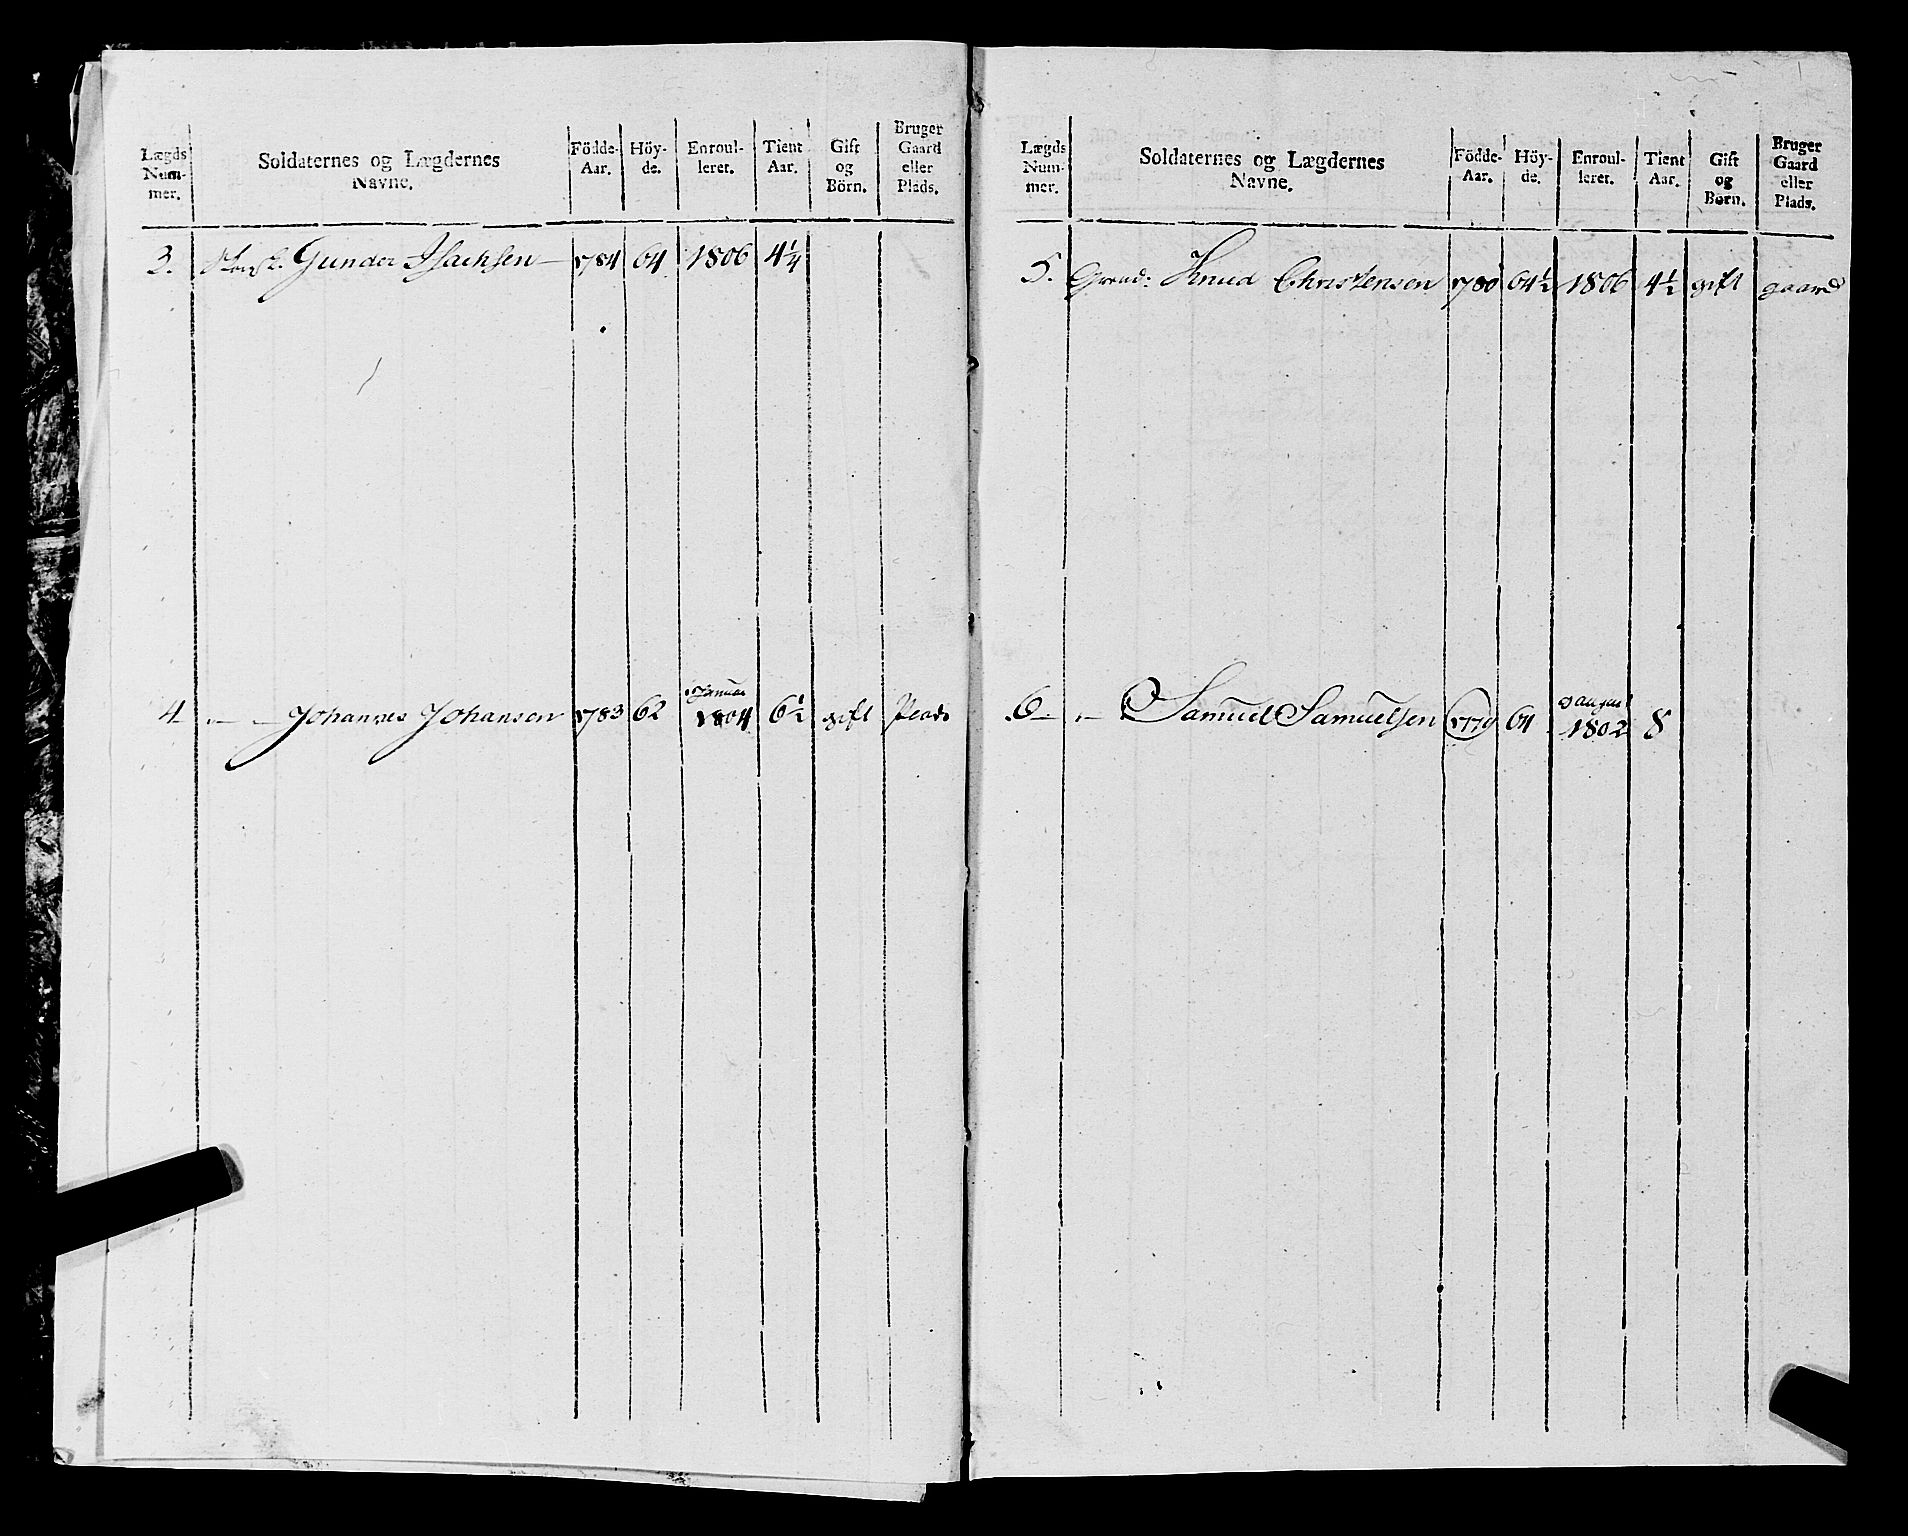 Lægds Num- mer. Soldaternes og Lægdernes Navne. Födde- Aar. Höy- de. Enroul- leret. Tient Aar. Gift og Börn. Bruger Gaard eller Plads.
3. Gunder Isachsen 1784 64 1806 4 1/4
Januar
4 - - Johannes Johansen 1783 62 1804 6 1/2 gift Plads
Lægds Num- mer. Soldaternes og Lægdernes Navne. Födde- Aar. Höy- de. Enroul- leret. Tient Aar. Gift og Börn. Bruger Gaard eller Plads.
5. Grend: Knud Christensen 1780 64 1/2 1806 4 1/2 gift gaard
6 - - Samuel Samuelsen 1779 64 1802 8